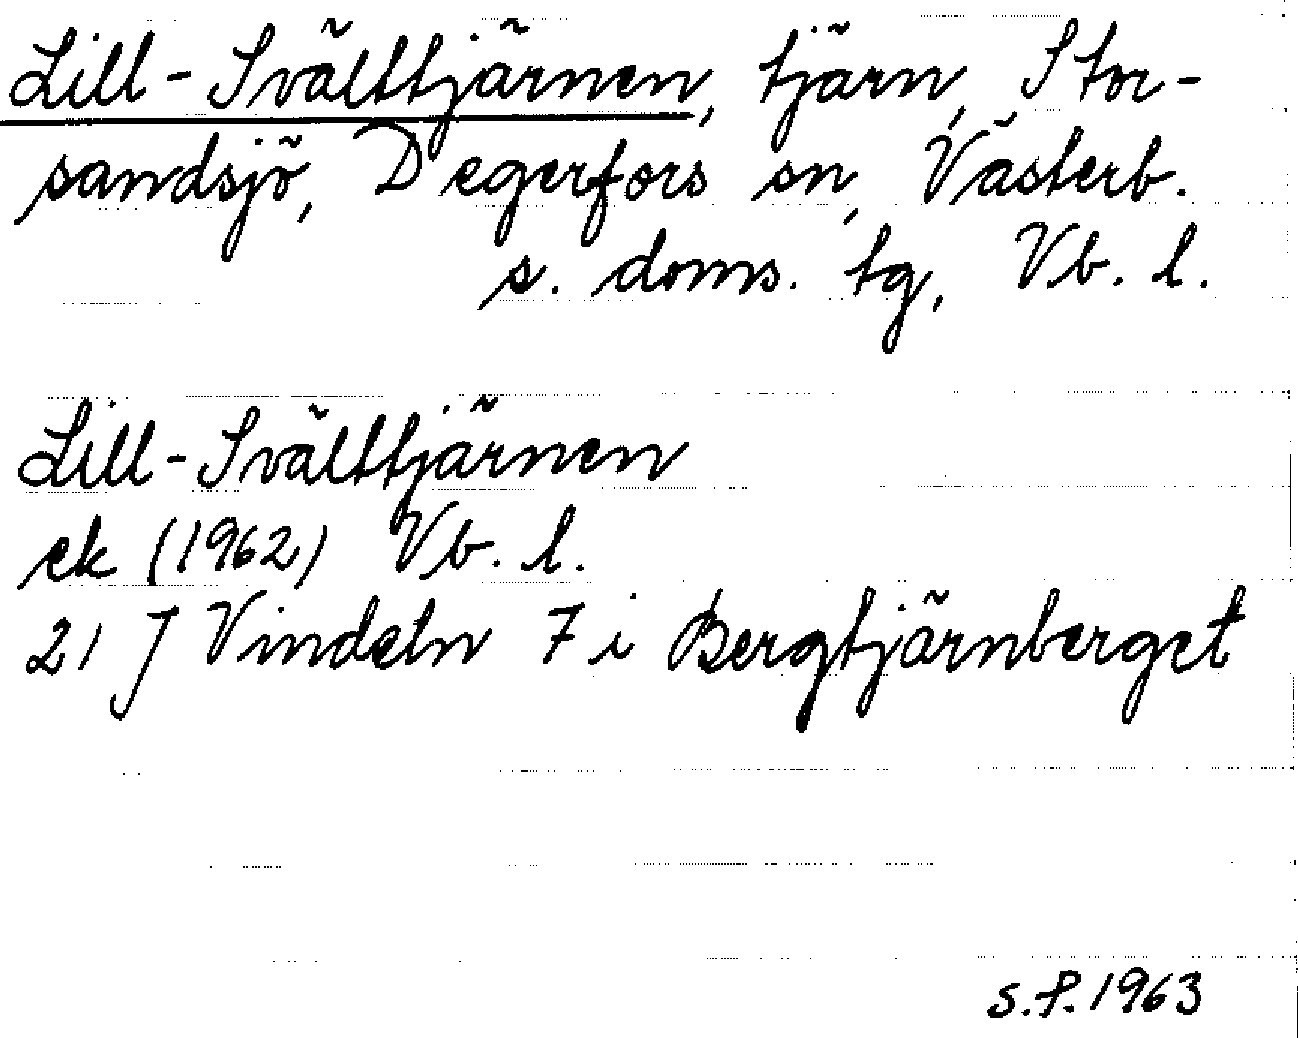 Lill-Svälttjärnen, tjärn, Stor-
sandsjö, Degerfors sn, Västerb.
s. doms. tg, Vb. l.
Lill-Svälttjärnen
ek (1962) Vb. l.
21 J Vindeln 7 i Bergtjärnberget
S.P. 1963